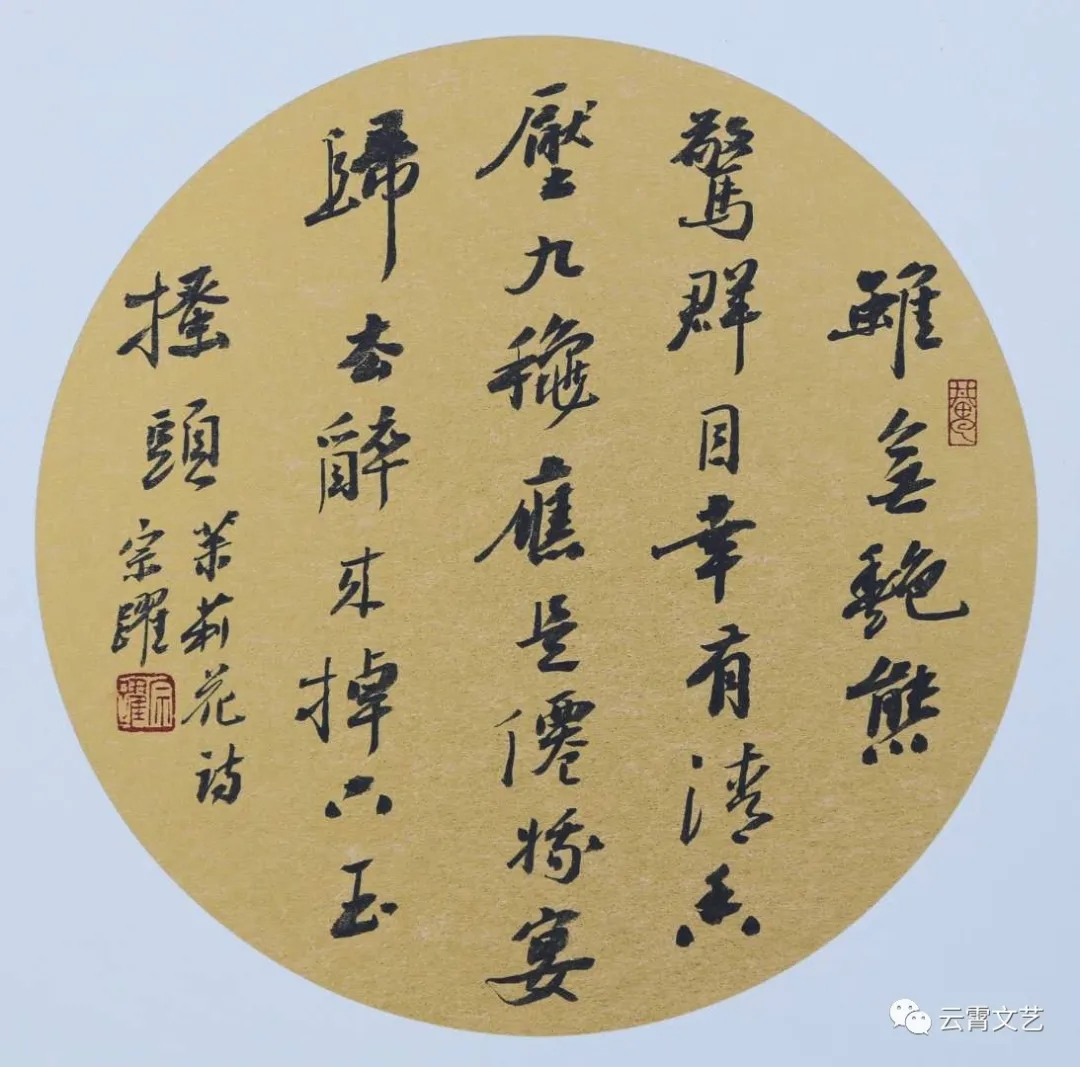 雖無艷態
驚群目幸有清香
壓九穐應是僊娥宴
歸去醉来掉下玉
搔頭
茉莉花詩
宗躍
宗躍
云霄文艺